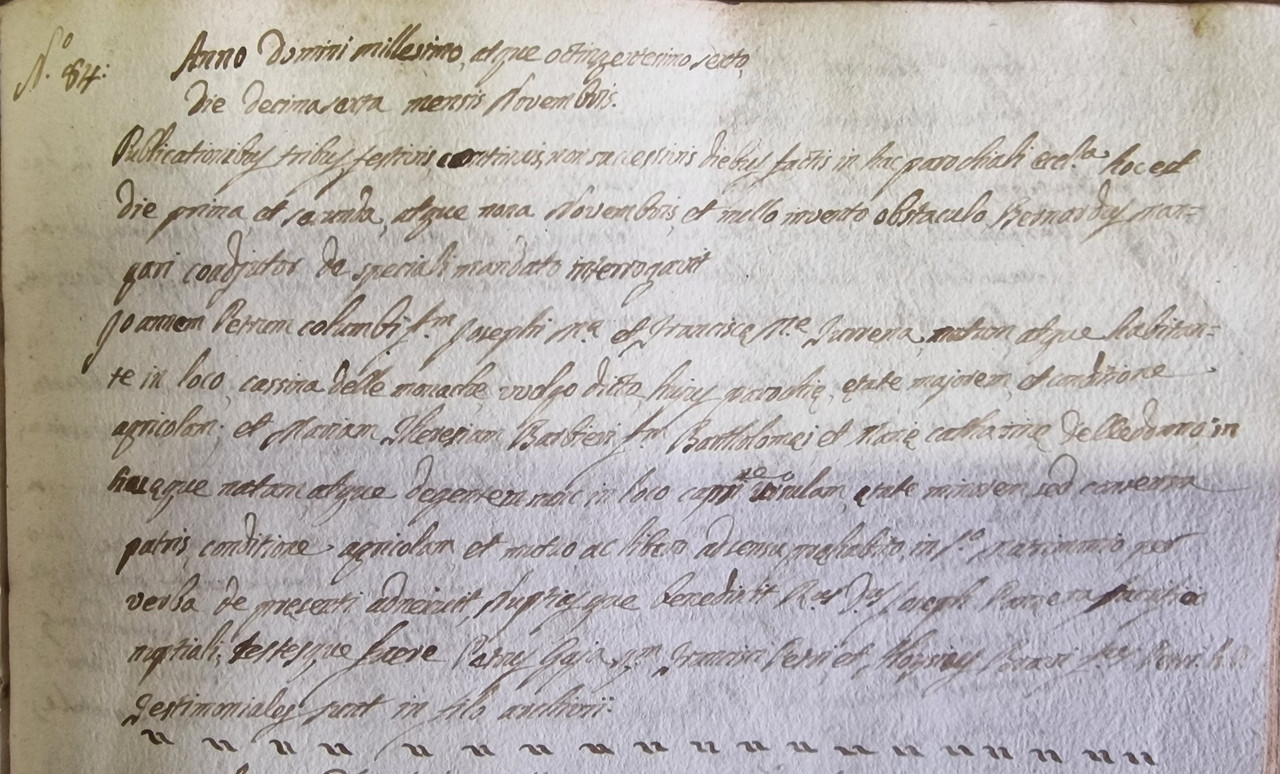 N.º 84:
Anno Domini millesimo, atque octingentesimo sexto,
die decimasexta mensis Novembris.
Publicationibus tribus festivis, continuis, non successivis diebus factis in hac parochiali eccl.ª hoc est
die prima, et secunda, atque nona Novembris, et nullo invento obstaculo, Bernardus
coadjutor de speciali mandato interrogavit
Joannem Petrum Columbi f.m Josephi M.ª et Franciscę M.ę natum atque habitan-
te in loco, cassina delle monache vulgo ditto, hujus parochię, ętate majorem, et conditione
agricolam; et Mariam Theresiam Barbieri f.m Bartholomęi et Marię Catharinę Delledonne, in
hacque natam, atque degentem nunc in loco ętate minorem, sed consensu
patris, conditione agricolam et mutuo ac libero adsensu pręhabito, in matrimonio per
verba de pręsenti adnexuit, Nuptiasque benedixit Rev. D.us Joseph
nuptiali, testesque fuere Petrus Gaja q.m Francisci Petri et Aloysius
Testimoniales sunt in filo archivii.